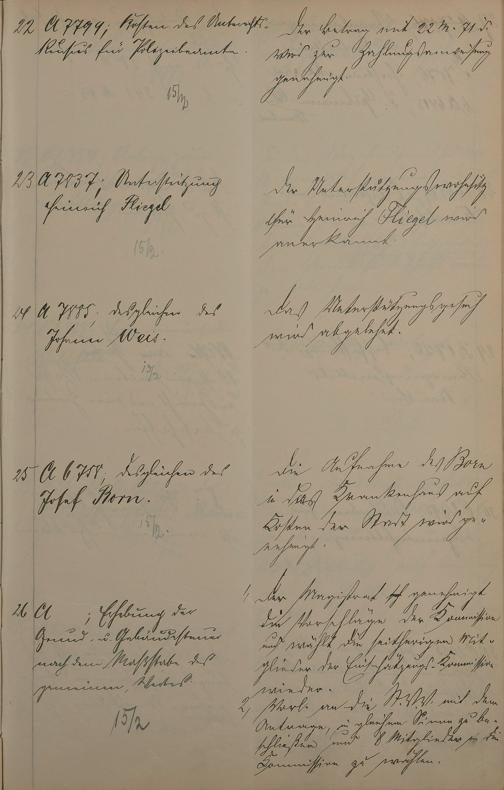 22 A 7799; Kosten des Unterrichts-
Kursus für Polizeibeamte.
15/2
Der Betrag mit 22 M. 71 d.
wird zur Zahlungsanweisung
genehmigt.
23 A 7837; Unterstützung
Heinrich Fliegel
15/2.
Der Unterstützungswohnsitz
für Heinrich Fliegel wird
anerkannt.
24 A 7895; desgleichen des
Johann Weis.
15/2
Das Unterstützungsgesuch
wird abgelehnt.
25 A 6758; desgleichen des
Josef Born.
15/2.
Die Aufnahme des Born
in das Krankenhaus auf
Kosten der Stadt wird ge-
nehmigt.
26 A ; Erhebung der
Grund- u. Gebäudesteuer
nach dem Maßstabe des
gemeinen Wertes.
15/2
1, Der Magistrat genehmigt
die Vorschläge der Kommission
und wählt die seitherigen Mit-
glieder der Einschätzungs-Kommission
wieder.
2, Vorl. an die St.V.V. mit dem
Antrage, in gleichem Sinne zu be-
schließen und 8 Mitglieder in die
Kommission zu wählen.